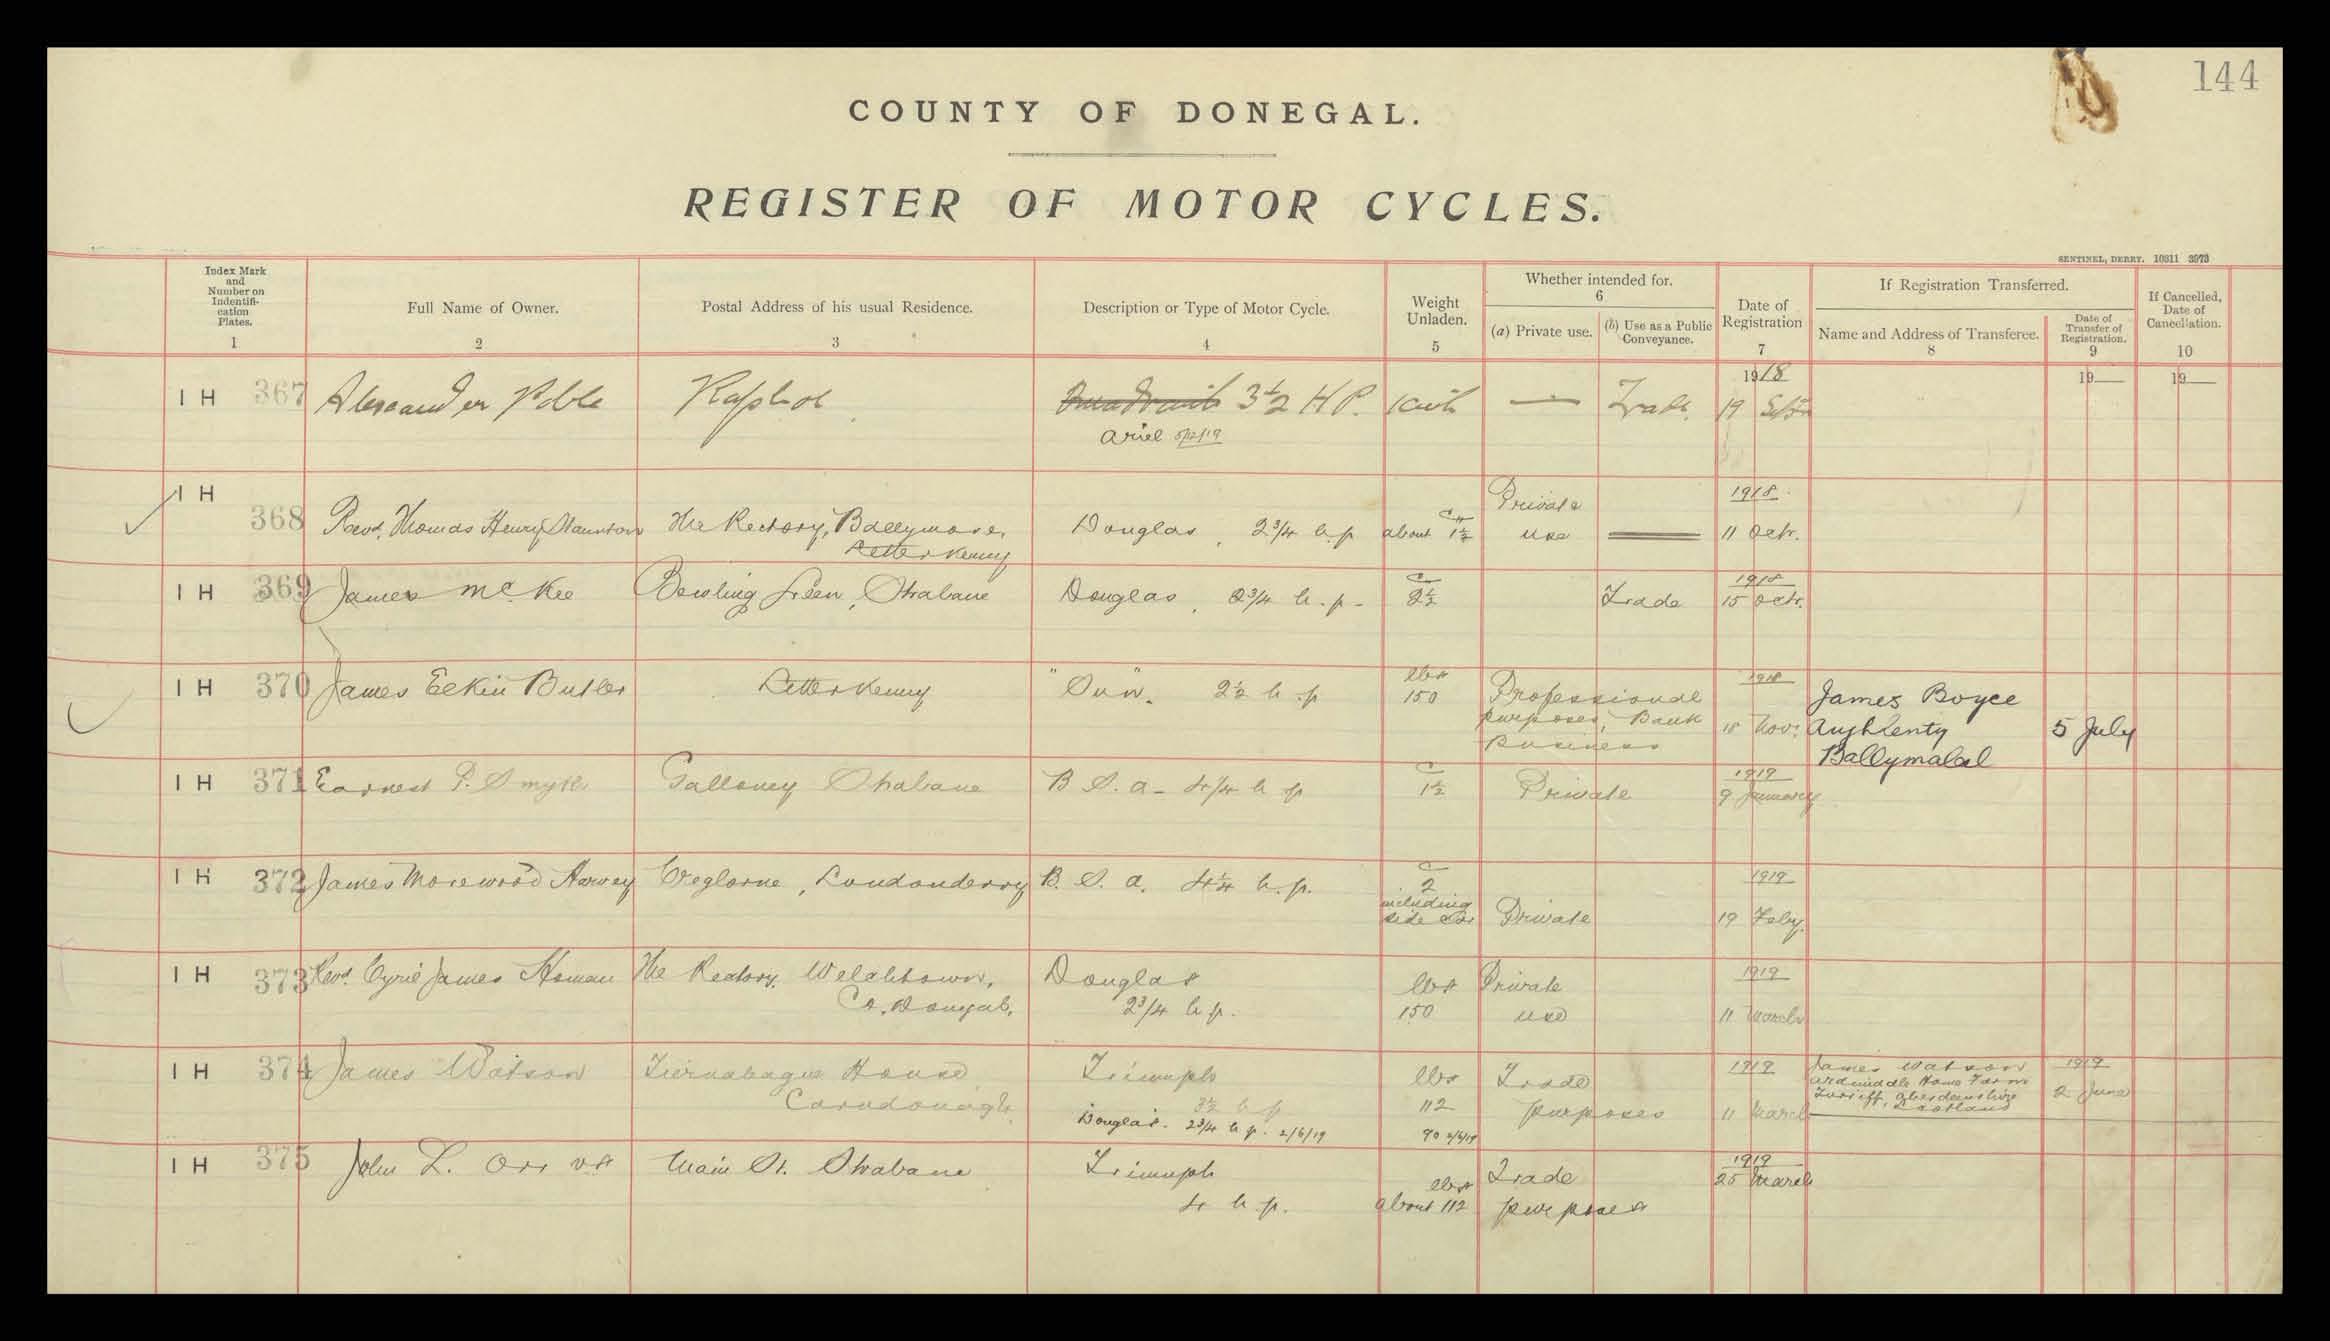 144
COUNTY OF DONEGAL.
REGISTER OF MOTOR CYCLES.
SENTINEL, DERRY. 10311 3973
Index Mark and Number on Indentifi- cation Plates. 1
Full Name of Owner. 2
Postal Address of his usual Residence. 3
Description or Type of Motor Cycle. 4
Weight Unladen. 5
Whether intended for. 6
(a) Private use.
(b) Use as a Public Conveyance.
Date of Registration 7
If Registration Transferred.
Name and Address of Transferee. 8
Date of Transfer of Registration. 9
If Cancelled, Date of Cancellation. 10
1918 19 19
IH 367 Alexander Raphoe 3½ H P. — Trade 19
Ariel 5/12/19
IH 368 Revd. Thomas Henry Staunton The Rectory, Ballymore, Douglas, 2¾ h.p. about 1½ Private use 1918 11 Octr.
Letterkenny
IH 369 James McKee Bowling Green, Strabane Douglas, 2¾ h.p. c 2½ Trade 1918 15 Octr.
IH 370 James Eekin Butler Letterkenny "Sun". 2½ h.p lbs 150 Professional purposes, Bank Business 1918 18 Novr. James Boyce
Aughlenty
Ballymalal
5 July
IH 371 Earnest P. Smyth Galloney Strabane B S. A- 4¼ h p c 1½ Private 1919 9 January
IH 372 James Morewood Harvey Londonderry B. S. A. 4¼ h.p. c 2 including side car Private 1919 19 Feby.
IH 373 Revd. Cyril James Homan The Rectory, Welchtown, Douglas lbs Private 1919
Co. Donegal. 2¾ h p. 150 use 11 March
IH 374 James Watson House Triumph lbs Trade 1919 James Watson 1919
Carndonagh. 3½ h p 112 purposes 11 March Home Farm
Turriff, Aberdeenshire
Scotland
2 June
Douglas. 2¾ h p. 2/6/19 90 2/6/19
IH 375 John L. Orr VS Main St. Strabane Triumph lbs Trade 1919 25 March
4 h.p. about 112 purposes